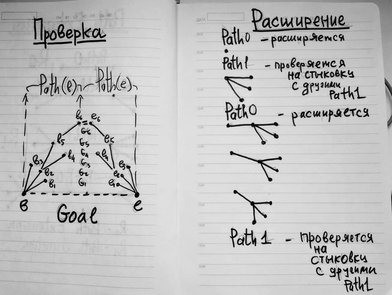 Проверка
Path(e) Path(e)
b6 e6
b5 e5
b3 b4 e4 e3
b2 e2
b1 e1
G6
G5
G4
G3
G2
G1
B e
Goal
Расширение
Path0 - расширяется
Path1 - проверяется
на стыковку
с другими
Path1
Path0 - расширяется
Path1 - проверяется
на
стыковку
с другими
Path1